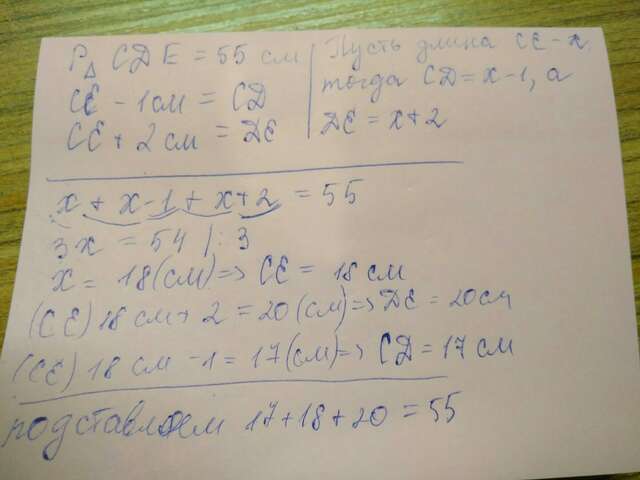 P△ CDE = 55 см
CE - 1см = CD
CE + 2 см = DE
Пусть длина CE - x,
тогда CD = x-1, а
DE = x+2
x + x-1 + x+2 = 55
3x = 54 | : 3
x = 18(см) => CE = 18 см
(CE) 18 см + 2 = 20 (см) => DE = 20см
(CE) 18 см -1 = 17(см) => CD = 17 см
подставляем 17+18+20 = 55